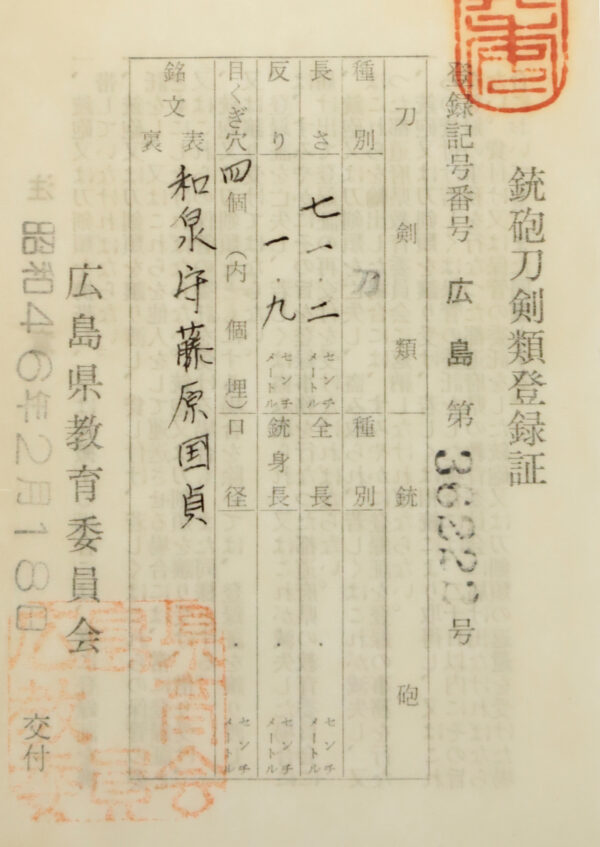 銃砲刀剣類登録証
登録記号番号 広島 第 号
刀剣類 銃砲
種別 刀 種別
長さ 七一.二 センチメートル 全長 . センチメートル
反り 一.九 センチメートル 銃身長 . センチメートル
目くぎ穴 四個 (内 個埋) 口径 . センチメートル
銘文 表 和泉守藤原国貞
裏
広島県教育委員会
昭和46年2月18日 交付